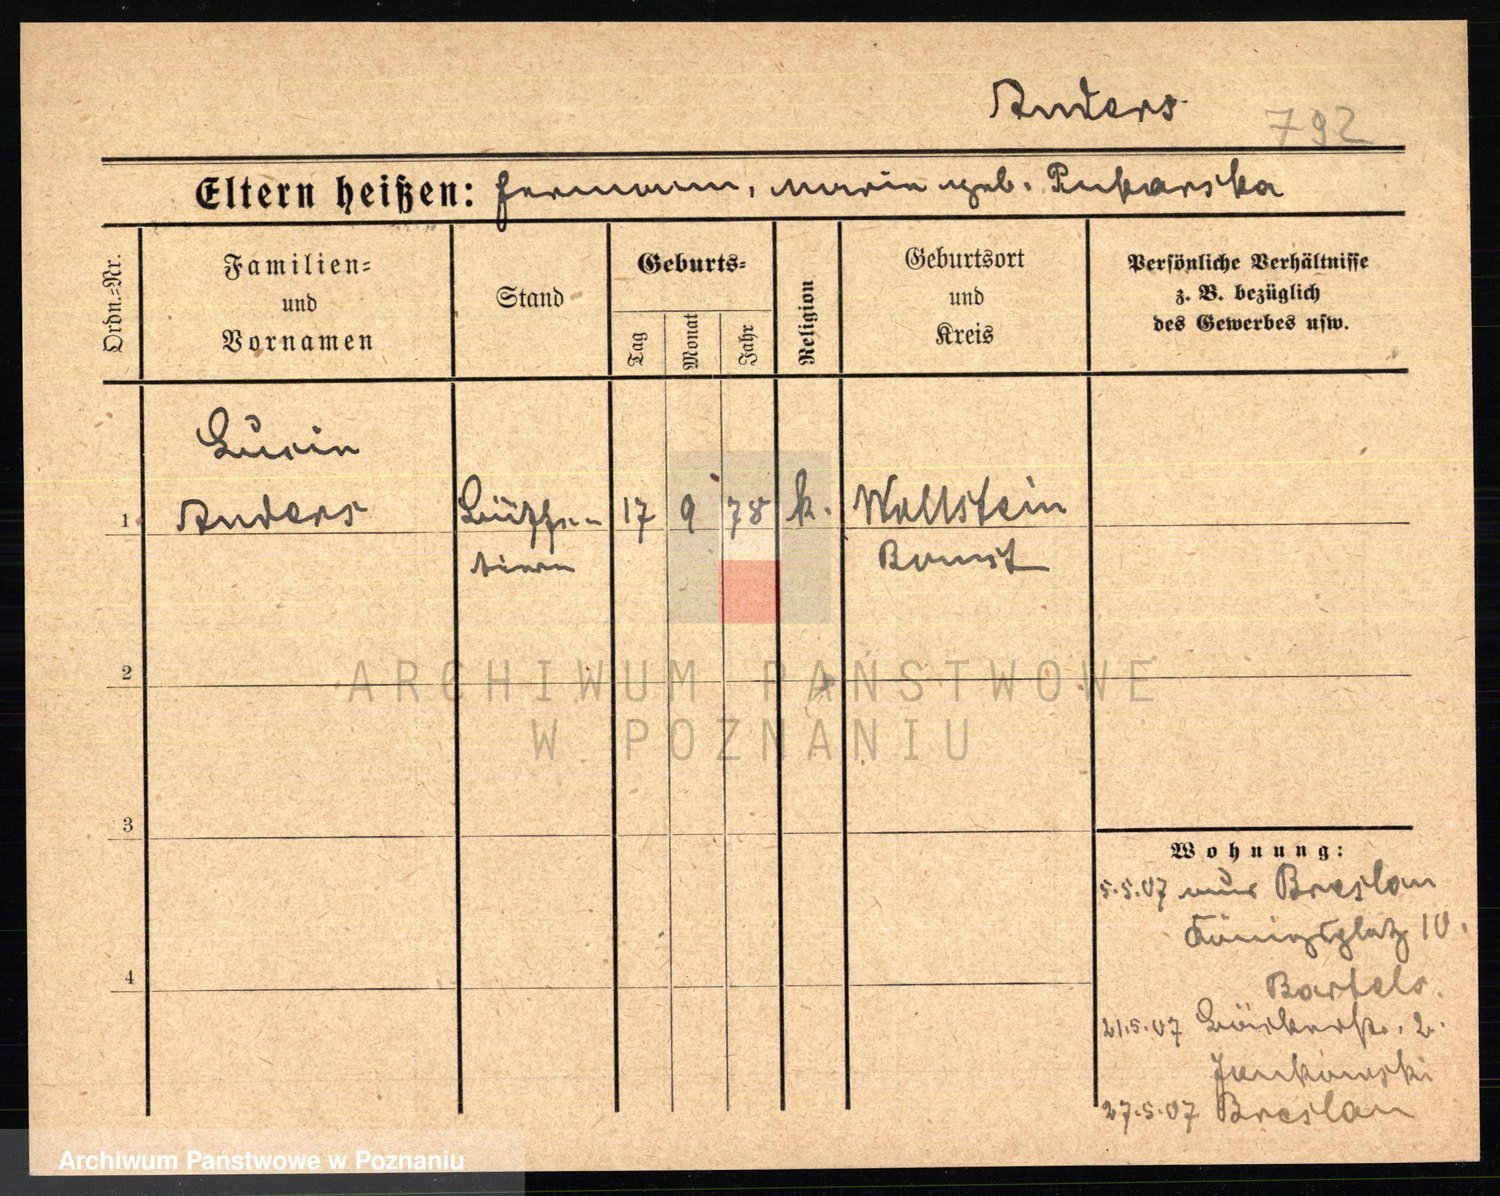 Anders
792
Eltern heißen: Hermann, Marie geb. Piekarska
Ordn.=Nr.
Familien=
und
Vornamen
Stand
Geburts=
Tag
Monat
Jahr
Religion
Geburtsort
und
Kreis
Persönliche Verhältnisse
z. B. bezüglich
des Gewerbes usw.
Lucie
1 Anders 17 9 78 k. Wollstein
Bomst
2
3
4
Wohnung:
5.5.07 aus Breslau
Königsplatz 10.
Bartels.
21.5.07 Bäckerstr. 2.
Jankowski
27.5.07 Breslau
ARCHIWUM PAŃSTWOWE
W POZNANIU
Archiwum Państwowe w Poznaniu